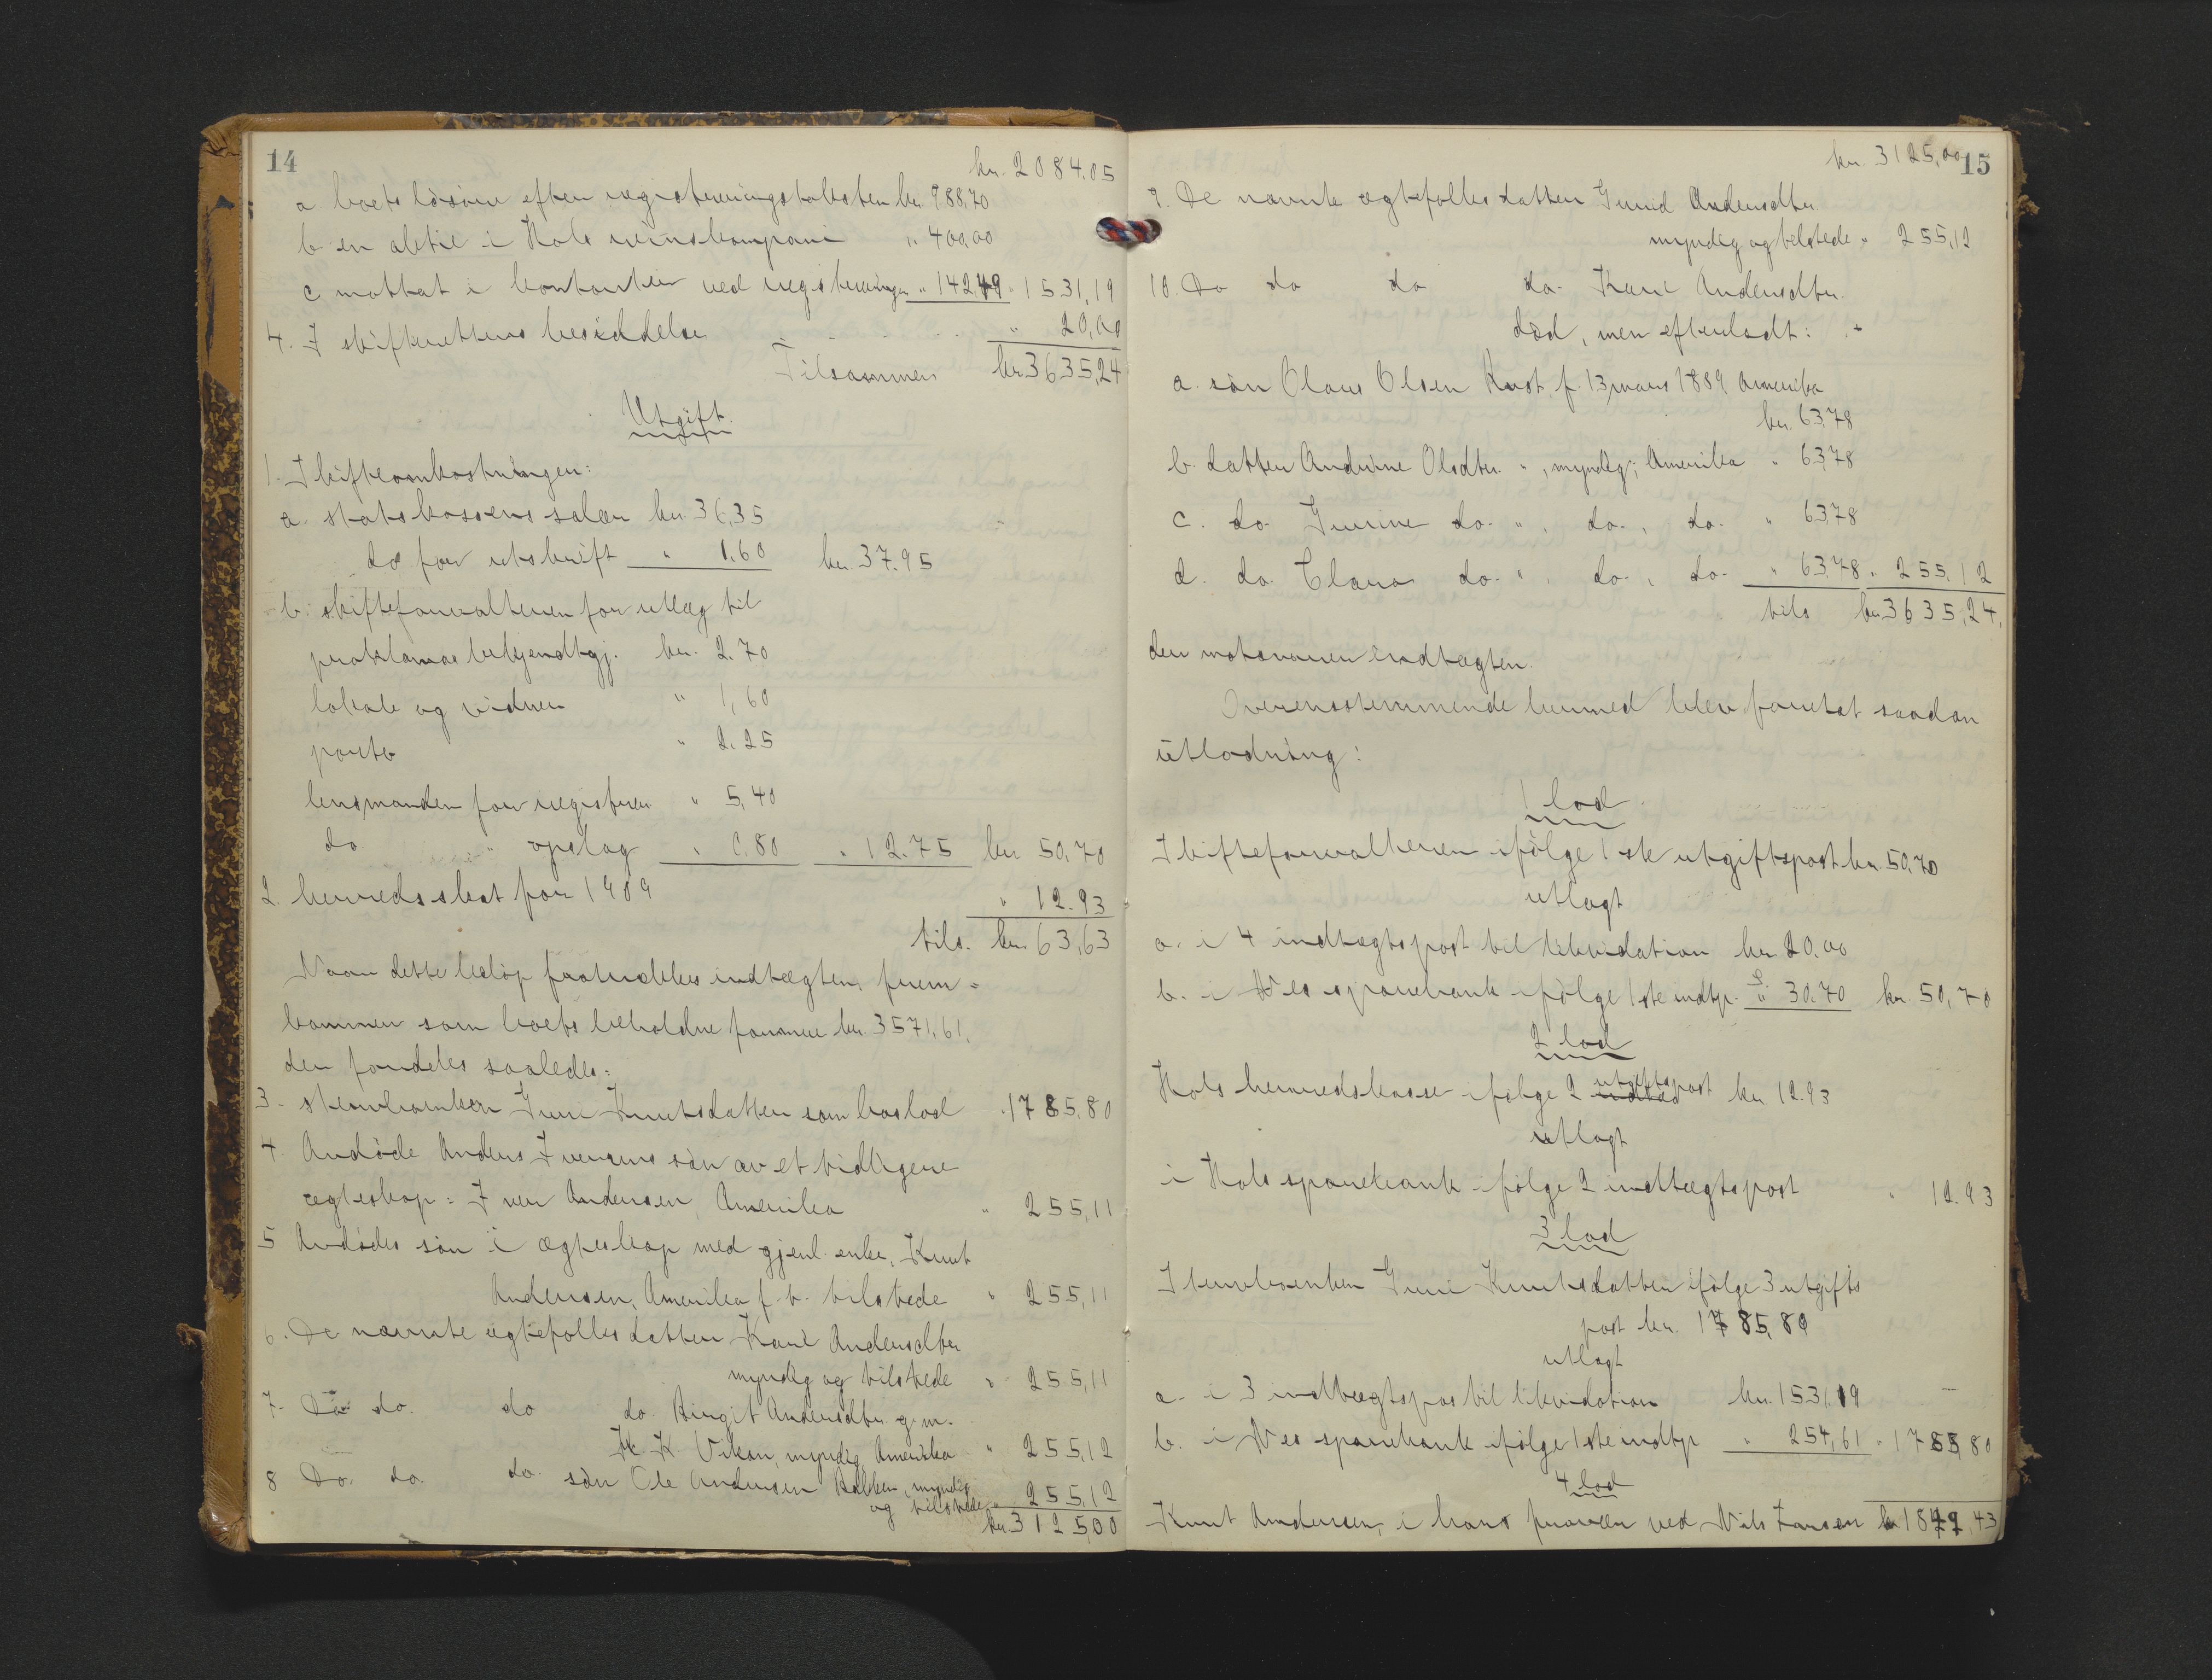 14
kr. 2084,05
a boets løsøre efter registreringstaksten kr. 988,70
b en aktie i Hols reinskompani " 400,00
c mottat i kontanter ved registreringen " 142,49 " 1531,19
4. I skifterettens besiddelse " 20,00
Tilsammen kr. 3635,24
Utgift.
1. Skifteomkostninger:
a. statskassens salær kr. 36,35
do for utskrift " 1.60 kr. 37.95
b. skifteforvalteren for utlæg til
proklamas bekjendtgj. kr. 2.70
lokale og vidner " 1,60
porto " 2.25
lensmanden for registrer. " 5,40
do " opslag " 0.80 " 12.75 kr 50,70
2. herredsskat for 1909 " 12.93
tils. kr. 63,63
Naar dette beløp fratrækkes indtægten, frem-
kommer som boets beholdne formue kr. 3571,61,
der fordeles saaledes:
3. Stervboenken Guri Knutsdatter som boslod " 1785,80
4. Avdøde Anders Iversens søn av et tidligere
ægteskap: Iver Andersen, Amerika " 255,11
5 Avdødes søn i ægteskap med gjenl. enke, Knut
Andersen, Amerika f. t. tilstede " 255,11
6. De nævnte egtefolks datter Kari Andersdtr
myndig og tilstede " 255,11
7. Do do. do do. Birgit Andersdtr. g. m.
K. K. Vikan, myndig, Amerika " 255,12
8 Do. do. do. søn Ole Andersen Bakken, myndig
og tilstede " 255,12
kr. 3125,00
kr. 3125,00
15
9. De nævnte egtefolks datter Gunild Andersdtr.
myndig og tilstede " 255,12
10. Do do do do. Kari Andersdtr.
død, men efterladt:
a. søn Olaus Olsen Rust. f. 13 mars 1889 Amerika
kr. 63,78
b. datter Andrine Olsdtr. ", myndig, Amerika " 63,78
c. do. Gurine do. ", do., do. " 63,78
d. do. Clara do. ", do., do. " 63,78 " 255,12
tils kr. 3635,24,
der motsvarer indtægten.
Overensstemmende hermed blev foretat saadan
utlodning:
1 lod
Skifteforvalteren ifølge 1ste utgiftspost kr. 50,70
utlagt
a. i 4 indtægtspost til likvidation kr 20.00
b. i Nes sparebank ifølge 1ste indtp. " 30.70 kr. 50,70
2 lod
Hols herredskasse ifølge 2 utgiftspost kr 12.93
utlagt
i Hols sparebank ifølge 2 indtægtspost " 12.93
3 lod
Stervboenken Guri Knutsdatter ifølge 3 utgifts
post kr. 1785,80
utlagt
a. i 3 indtægtspos til likvidation kr. 1531,19
b. i Nes sparebank ifølge 1ste indtp " 254,61 " 1785,80
4 lod
Knut Andersen, i hans fravær ved Nils Larsen kr 1849,43